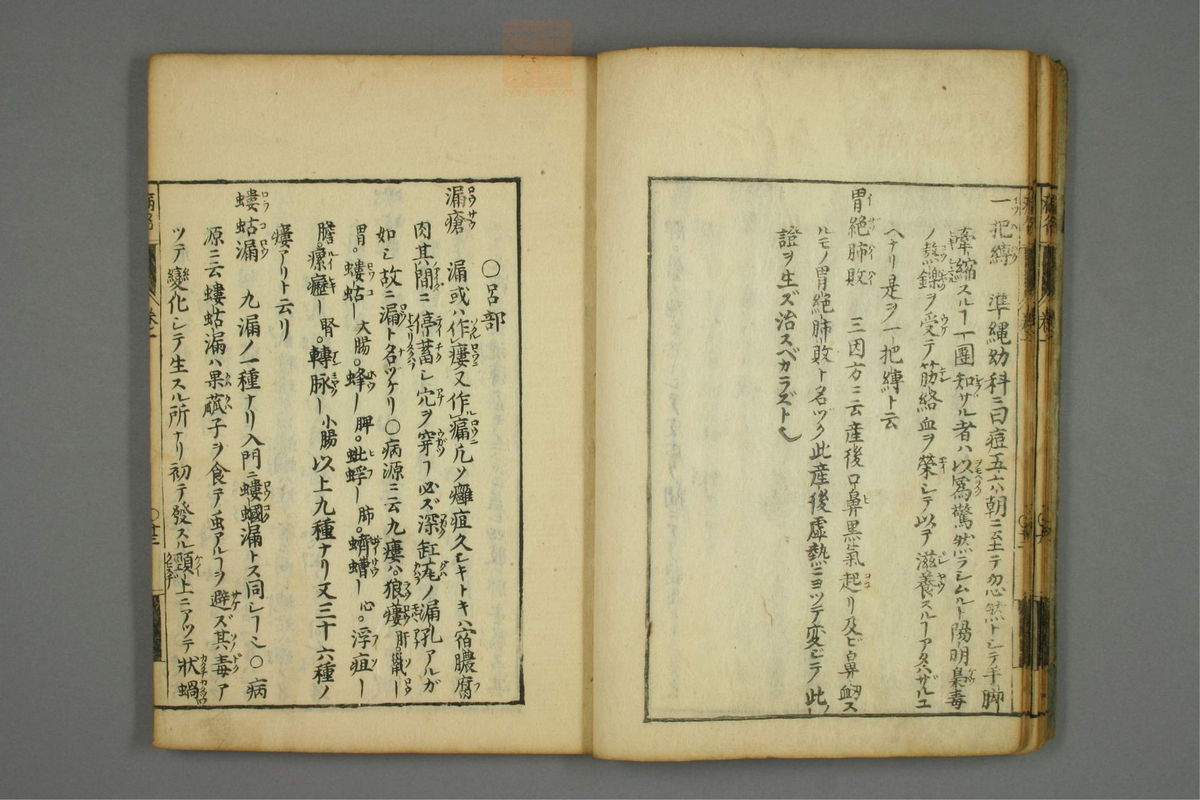 一把縛 準縄幼科ニ曰痘五六朝ニ至テ忽然トシテ手脚
牽縮スルヿ一團知ザル者ハ以為驚然ラシムルト陽明梟毒
ノ熬鑠ヲ受テ筋絡血ヲ榮シテ以テ滋養スルヿアタハザルユ
ヘナリ是ヲ一把縛ト云
胃絶肺敗 三因方ニ云産後口鼻黒氣起リ及ビ鼻衂ス
ルモノ胃絶肺敗ト名ヅク此産後虚熱ニヨツテ変ビテ此
證ヲ生ズ治スベカラズト也
○呂部
漏瘡 漏或ハ作瘻又作㾞凡ソ癰疽久シキトキハ宿膿腐
肉其間ニ停蓄シ穴ヲ穿ヿ必ズ深缸瓦ノ漏孔アルガ
如シ故ニ漏ト名ツケリ○病源ニ云九瘻ハ狼瘻肝鼠ー
胃螻蛄ー大腸蜂ー脾蚍蜉ー肺蠐螬ー心浮疽ー
膽瘰癧ー腎轉脉ー小腸以上九種ナリ又三十六種ノ
瘻アリト云リ
螻蛄漏 九漏ノ一種ナリ入門ニ螻蟈漏トス同シーン○病
源ニ云螻蛄漏ハ果蓏子ヲ食テ虫アルヿヲ避ズ其毒ア
ツテ變化シテ生スル所ナリ初テ發スル頸上ニアツテ狀蝸